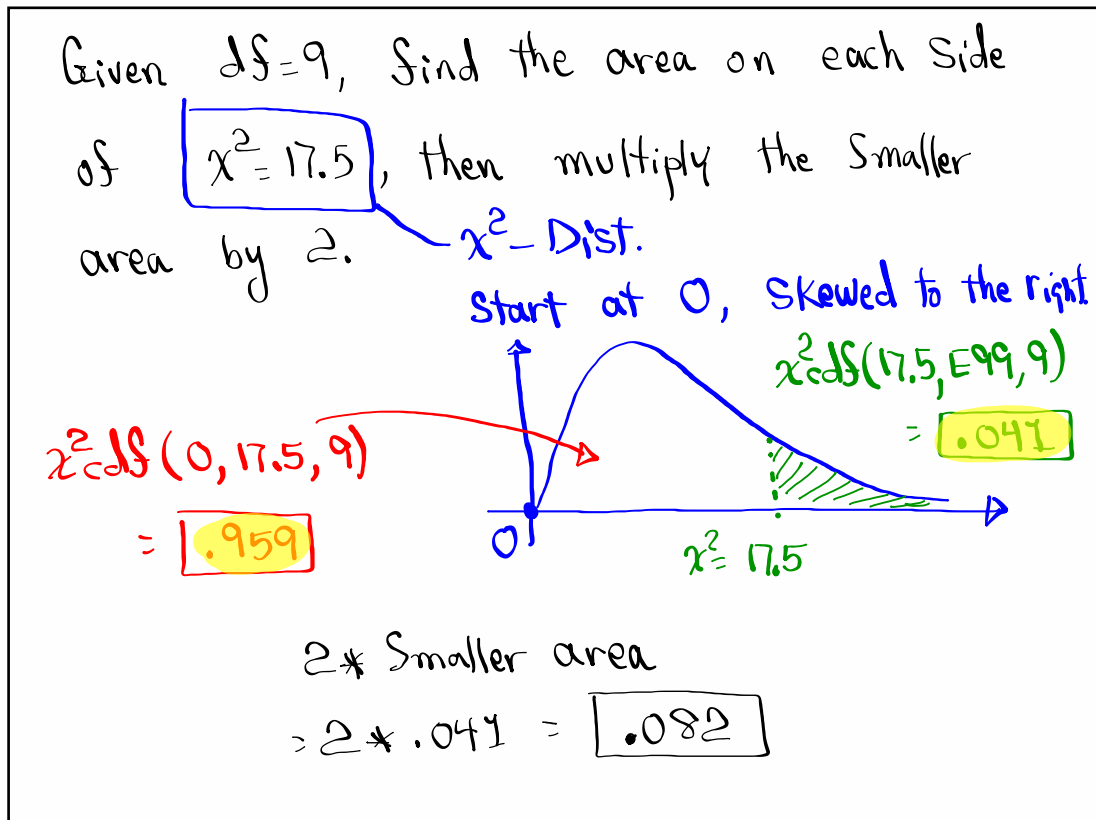 Given df=9, find the area on each Side
of x²=17.5, then multiply the Smaller
area by 2.
x²- Dist.
Start at 0, Skewed to the right
x²cdf(17.5,E99,9)
= .041
x²cdf(0,17.5,9)
= .959
0
x²=17.5
2* Smaller area
=2*.041 = .082